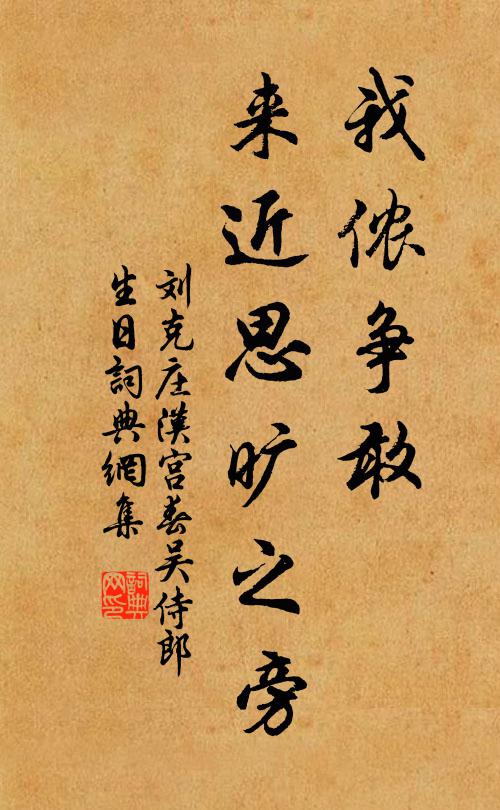 我侬争敢
来近思旷之旁
刘克庄漢宫春吴侍郎
生日詞典網集
詞典
网印